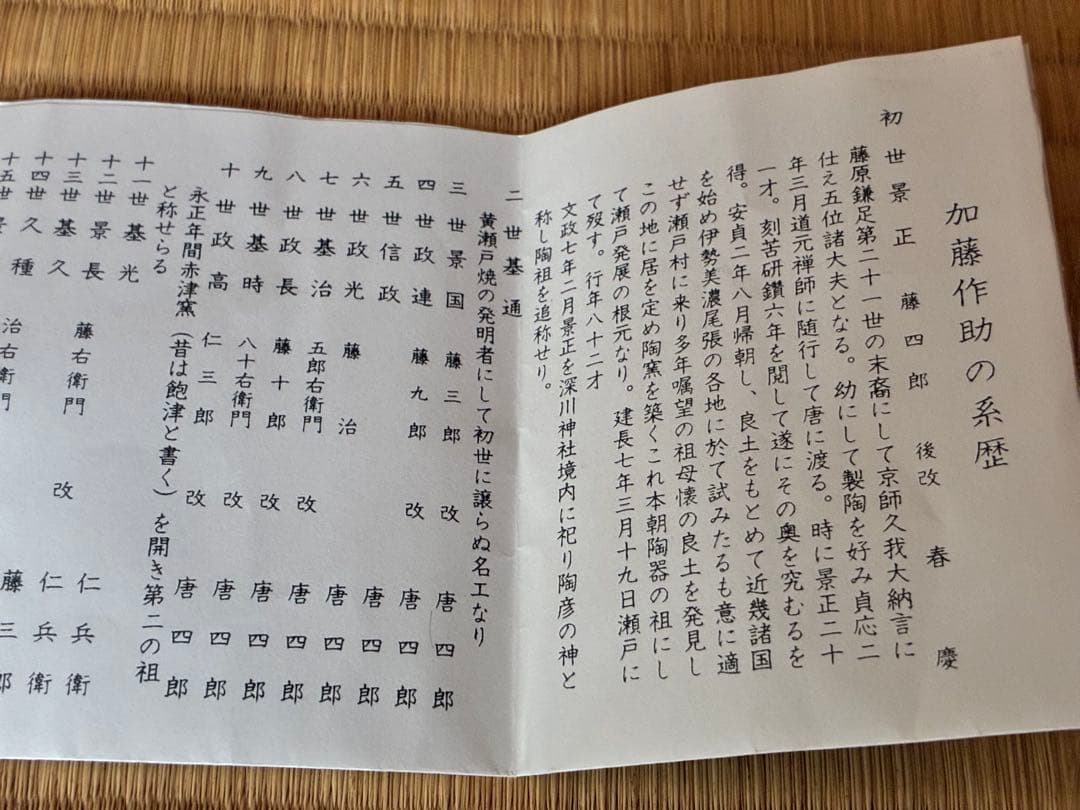 加藤作助の系歴
初世景正 藤四郎 後改 春慶
藤原鎌足第二十一世の末裔にして京師久我大納言に
仕え五位諸大夫となる。幼にして製陶を好み貞応二
年三月道元禅師に随行して唐に渡る。時に景正二十
一才。刻苦研鑽六年を閲して遂にその奥を究むるを
得。安貞二年八月帰朝し、良土をもとめて近幾諸国
を始め伊勢美濃尾張の各地に於て試みたるも意に適
せず瀬戸村に来り多年嘱望の祖母懐の良土を発見し
この地に居を定め陶窯を築くこれ本朝陶器の祖にし
て瀬戸発展の根元なり。建長七年三月十九日瀬戸に
て歿す。行年八十二才
文政七年二月景正を深川神社境内に祀り陶彦の神と
称し陶祖を追称せり。
二世基通
黄瀬戸焼の発明者にして初世に譲らぬ名工なり
三世景国 藤三郎 改 唐四郎
四世政連 藤九郎 改 唐四郎
五世信政 唐四郎
六世政光 藤治 唐四郎
七世基治 五郎右衛門 改 唐四郎
八世政長 藤十郎 改 唐四郎
九世基時 八十右衛門 改 唐四郎
十世政高 仁三郎 改 唐四郎
永正年間赤津窯(昔は飽津と書く)を開き第二の祖
と称せらる
十一世基光
十二世景長 藤右衛門 仁兵衛
十三世基久 改 仁兵衛
十四世久種 治右衛門 藤三郎
十五世